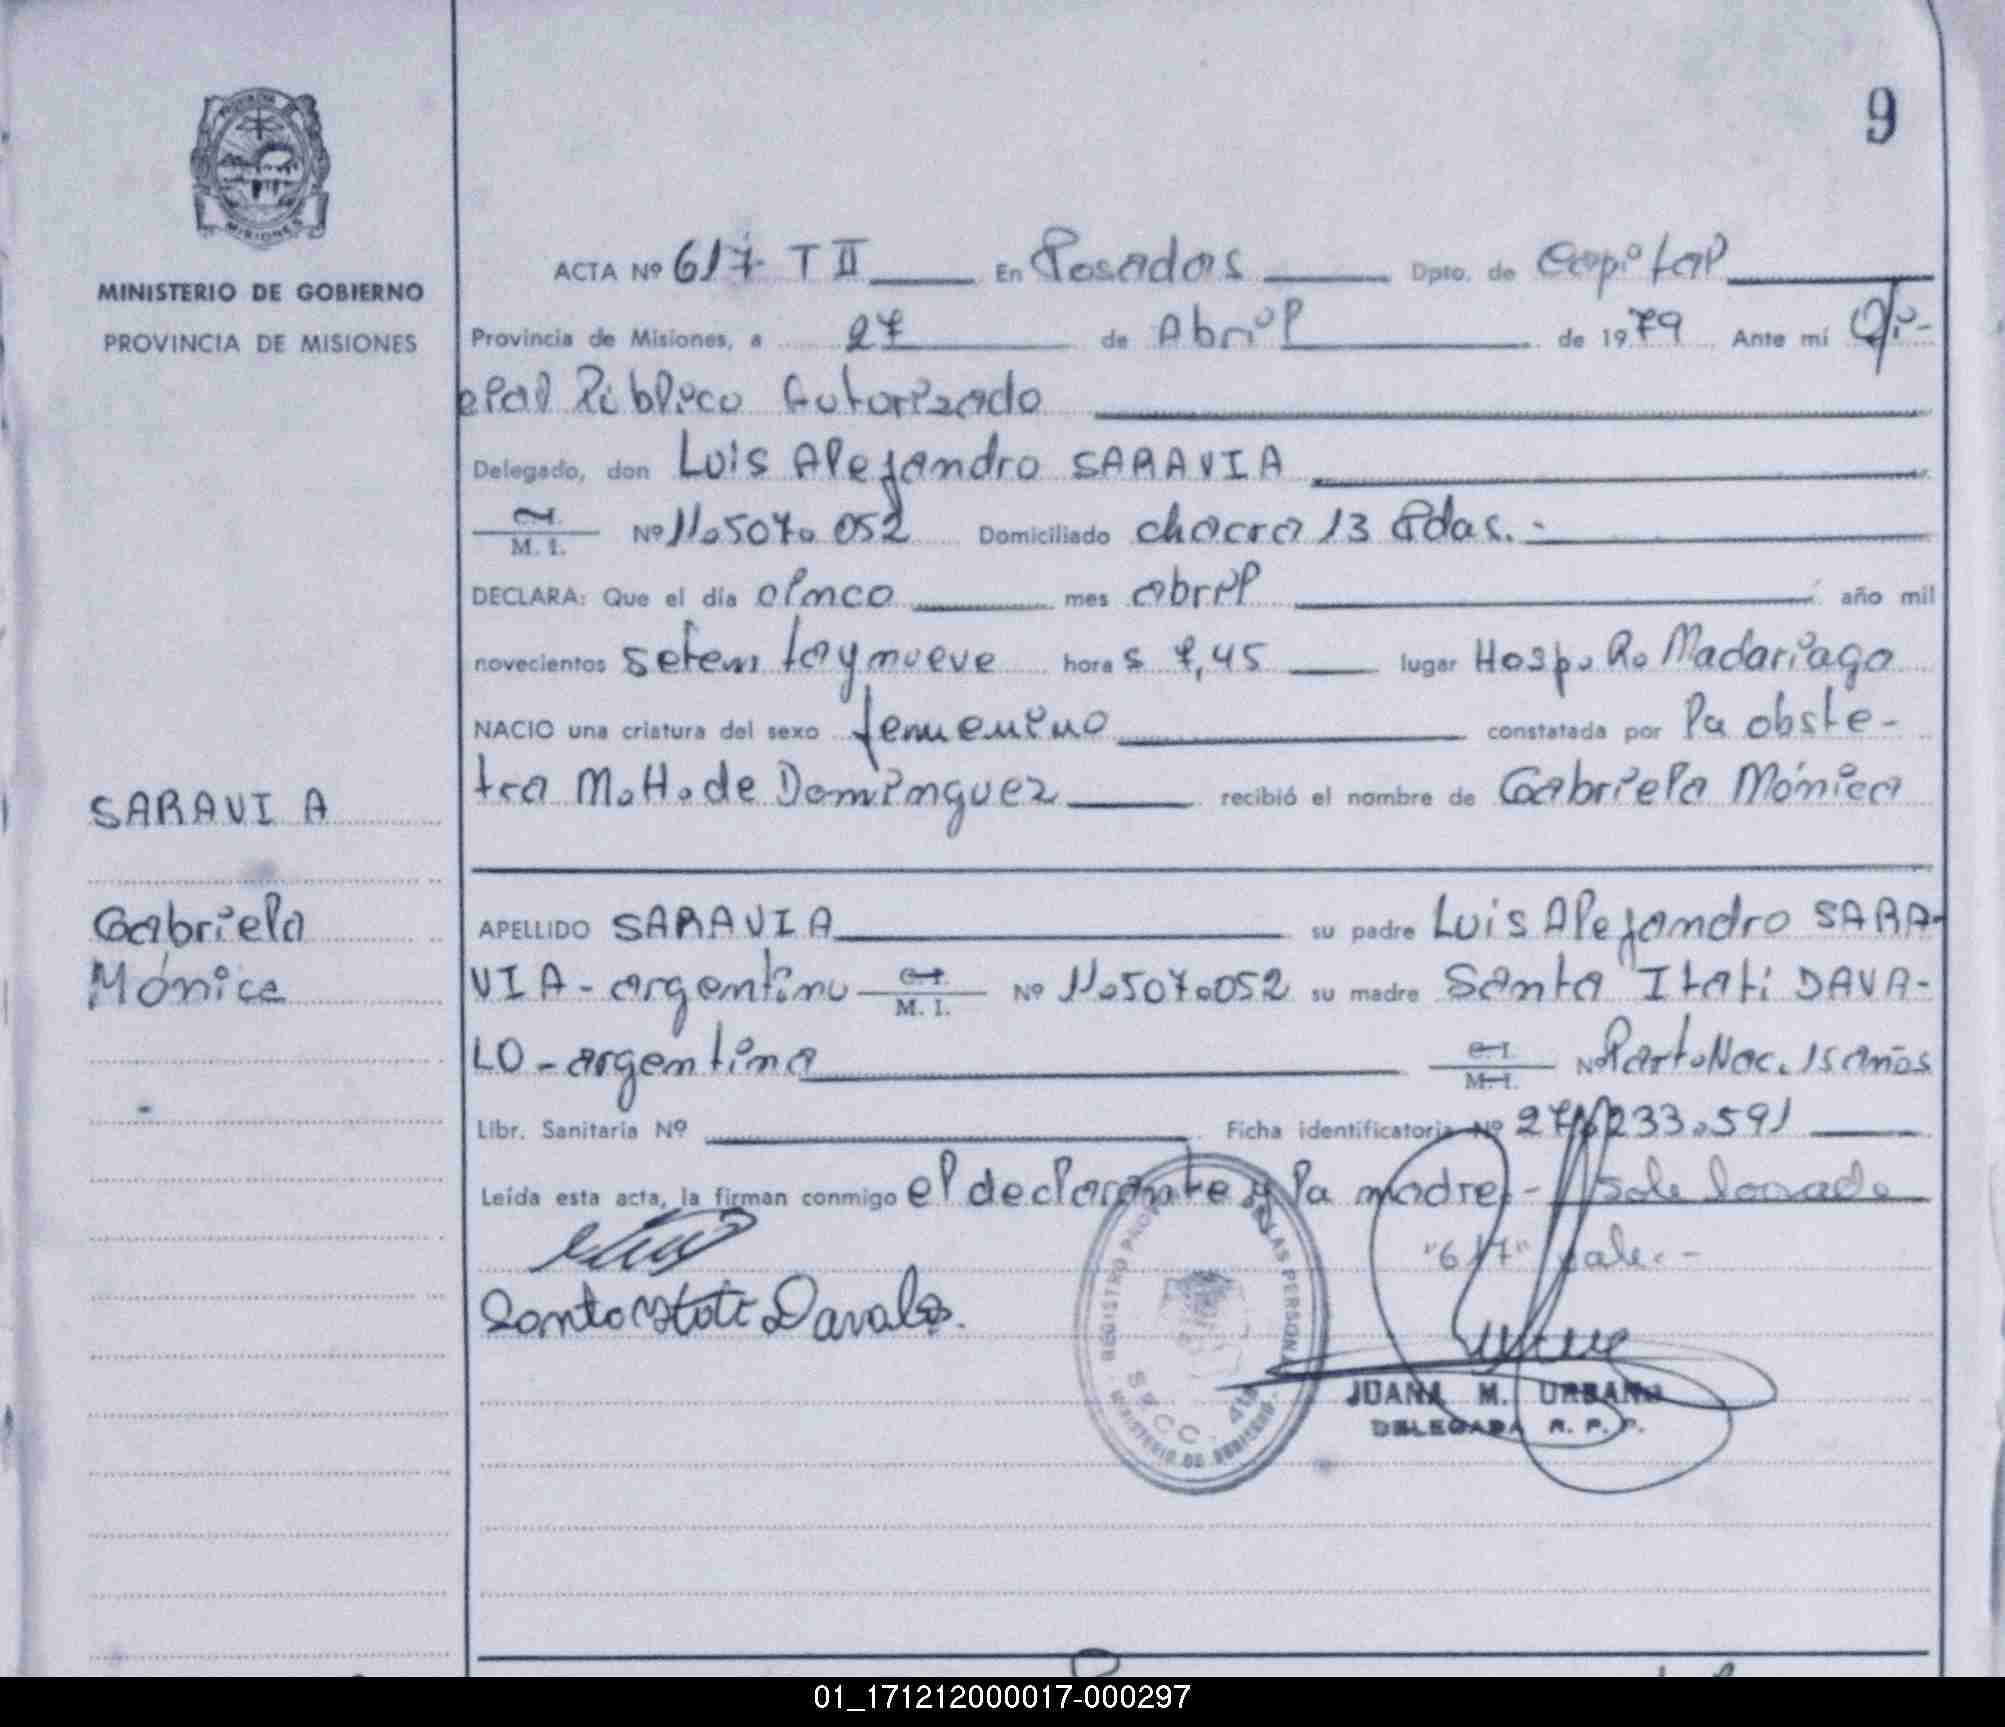 9
MINISTERIO DE GOBIERNO
PROVINCIA DE MISIONES
ACTA Nº 617 T II En Posadas Dpto. de Capital
Provincia de Misiones, a 27 de Abril de 1979 Ante mí Ofi-
cial Público Autorizado
Delegado, don Luis Alejandro SARAVIA
C.I. M. I. Nº 11.507.052 Domiciliado chacra 13 Pdas.-
DECLARA: Que el día cinco mes abril año mil
novecientos setentaynueve hora s 7,45 lugar Hosp. R. Madariaga
NACIO una criatura del sexo femenino constatada por la obste-
tra M.H.de Dominguez recibió el nombre de Gabriela Mónica
SARAVIA
Gabriela
Mónica
APELLIDO SARAVIA su padre Luis Alejandro SARA-
VIA-argentino C.I. M. I. Nº 11.507.052 su madre Santa Itatí DAVA-
LO-argentina C.I. M.I. Nº Part.Nac. 15 años
Libr. Sanitaria Nº Ficha identificatoria Nº 27.233.591
Leída esta acta, la firman conmigo el declarante y la madre.-
"617" vale.-
Santa Itati Davalo.
REGISTRO PROV. DE LAS PERSONAS
SECC. 4ta
MINISTERIO DE GOBIERNO
JUANA M. URBANO
DELEGADA R. P. P.
01_171212000017-000297